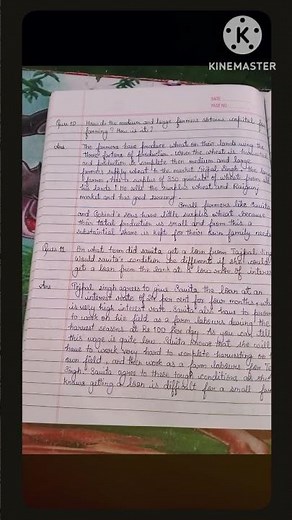 K
KINEMASTER
DATE
PAGE NO.
Ques 10 How do the medium and large farmers obtain capital for
farming? How is it ?
Ans The farmers have produce wheat on their lands using the
three factors of production. When the wheat is
and production is complete then medium and large
farmers supply wheat to the market. Tejpal Singh, the
farmer, has a surplus of 350 quintals of wheat from all
his lands! He sells the surplus wheat and Raiganj
market and has good earning.
Small farmers like Savita
and Gobind's sons have little surplus wheat because
their total production is small and from this a
substantial share is kept for their own family needs
Ques 11 On what term did Savita get a loan from Tajpal Singh
would Savita's condition be different if she could
get a loan from the bank at a low rate of interest
Ans Tejpal Singh agrees to give Savita the loan at an
interest rate of 24 per cent for four months, w
is very high interest rate. Savita also have to promise
to work on his field as a farm labourer during the
harvest season at Rs 100 per day. As you can tell
this wage is quite low. Savita knows that she will
have to work very hard to complete harvesting on
own field, and then work as a farm labourer for
Singh. Savita agree to these tough conditions as she
knows getting a loan is difficult for a small far